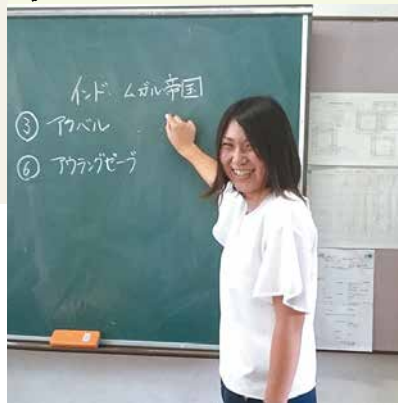 インド ムガル帝国
③ アクバル
⑥ アウラングゼーブ